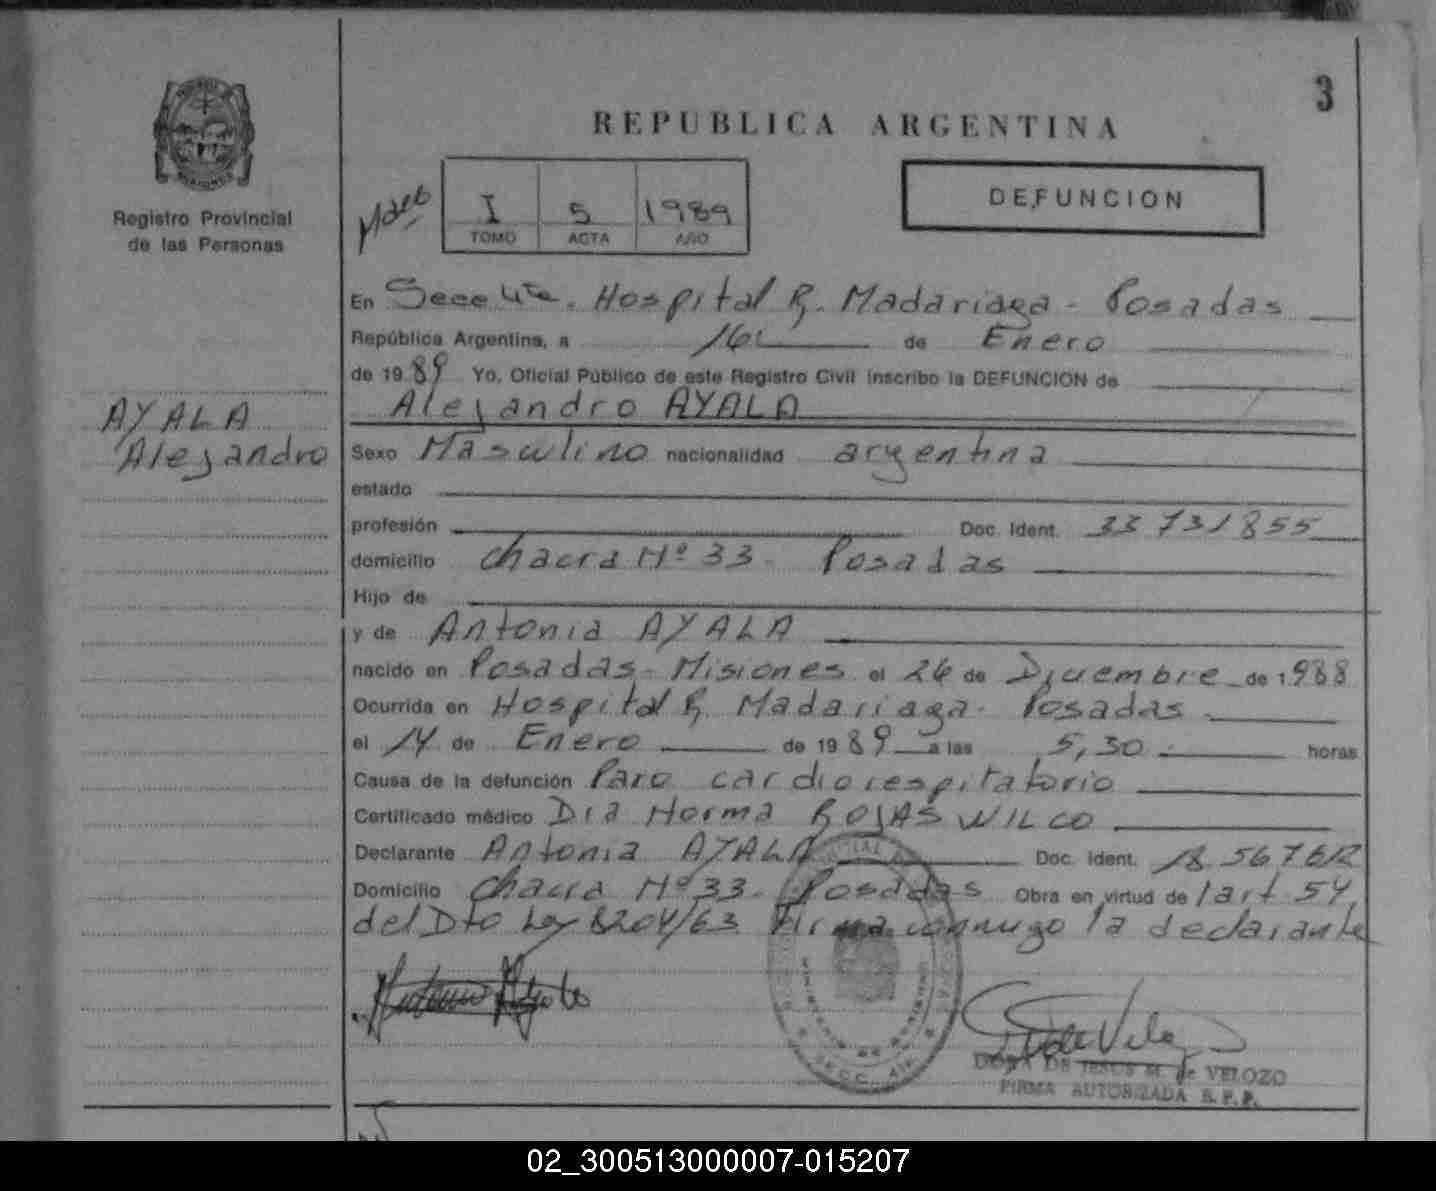 3
REPUBLICA ARGENTINA
Registro Provincial
de las Personas
I 5 1989
TOMO ACTA AÑO
DEFUNCION
En Secc 4ta. Hospital R. Madariaga - Posadas
República Argentina, a 16 de Enero
de 1989 Yo, Oficial Público de este Registro Civil inscribo la DEFUNCION de
Alejandro AYALA
AYALA
Alejandro
Sexo Masculino nacionalidad argentina
estado
profesión Doc. Ident. 33 731855
domicilio Chacra Nº 33 - Posadas
Hijo de
y de Antonia AYALA
nacido en Posadas - Misiones el 26 de Diciembre de 1988
Ocurrida en Hospital R. Madariaga - Posadas
el 14 de Enero de 1989 a las 5,30 horas
Causa de la defunción Paro cardiorespiratorio
Certificado médico Dra Norma ROJAS WILCO
Declarante Antonia AYALA Doc. Ident. 18.567612
Domicilio Chacra Nº 33 - Posadas Obra en virtud de l art 54,
del Dto Ley 8204/63 Firma conmigo la declarante
DORA DE JESUS M. de VELOZO
FIRMA AUTORIZADA R.P.P.
02_300513000007-015207